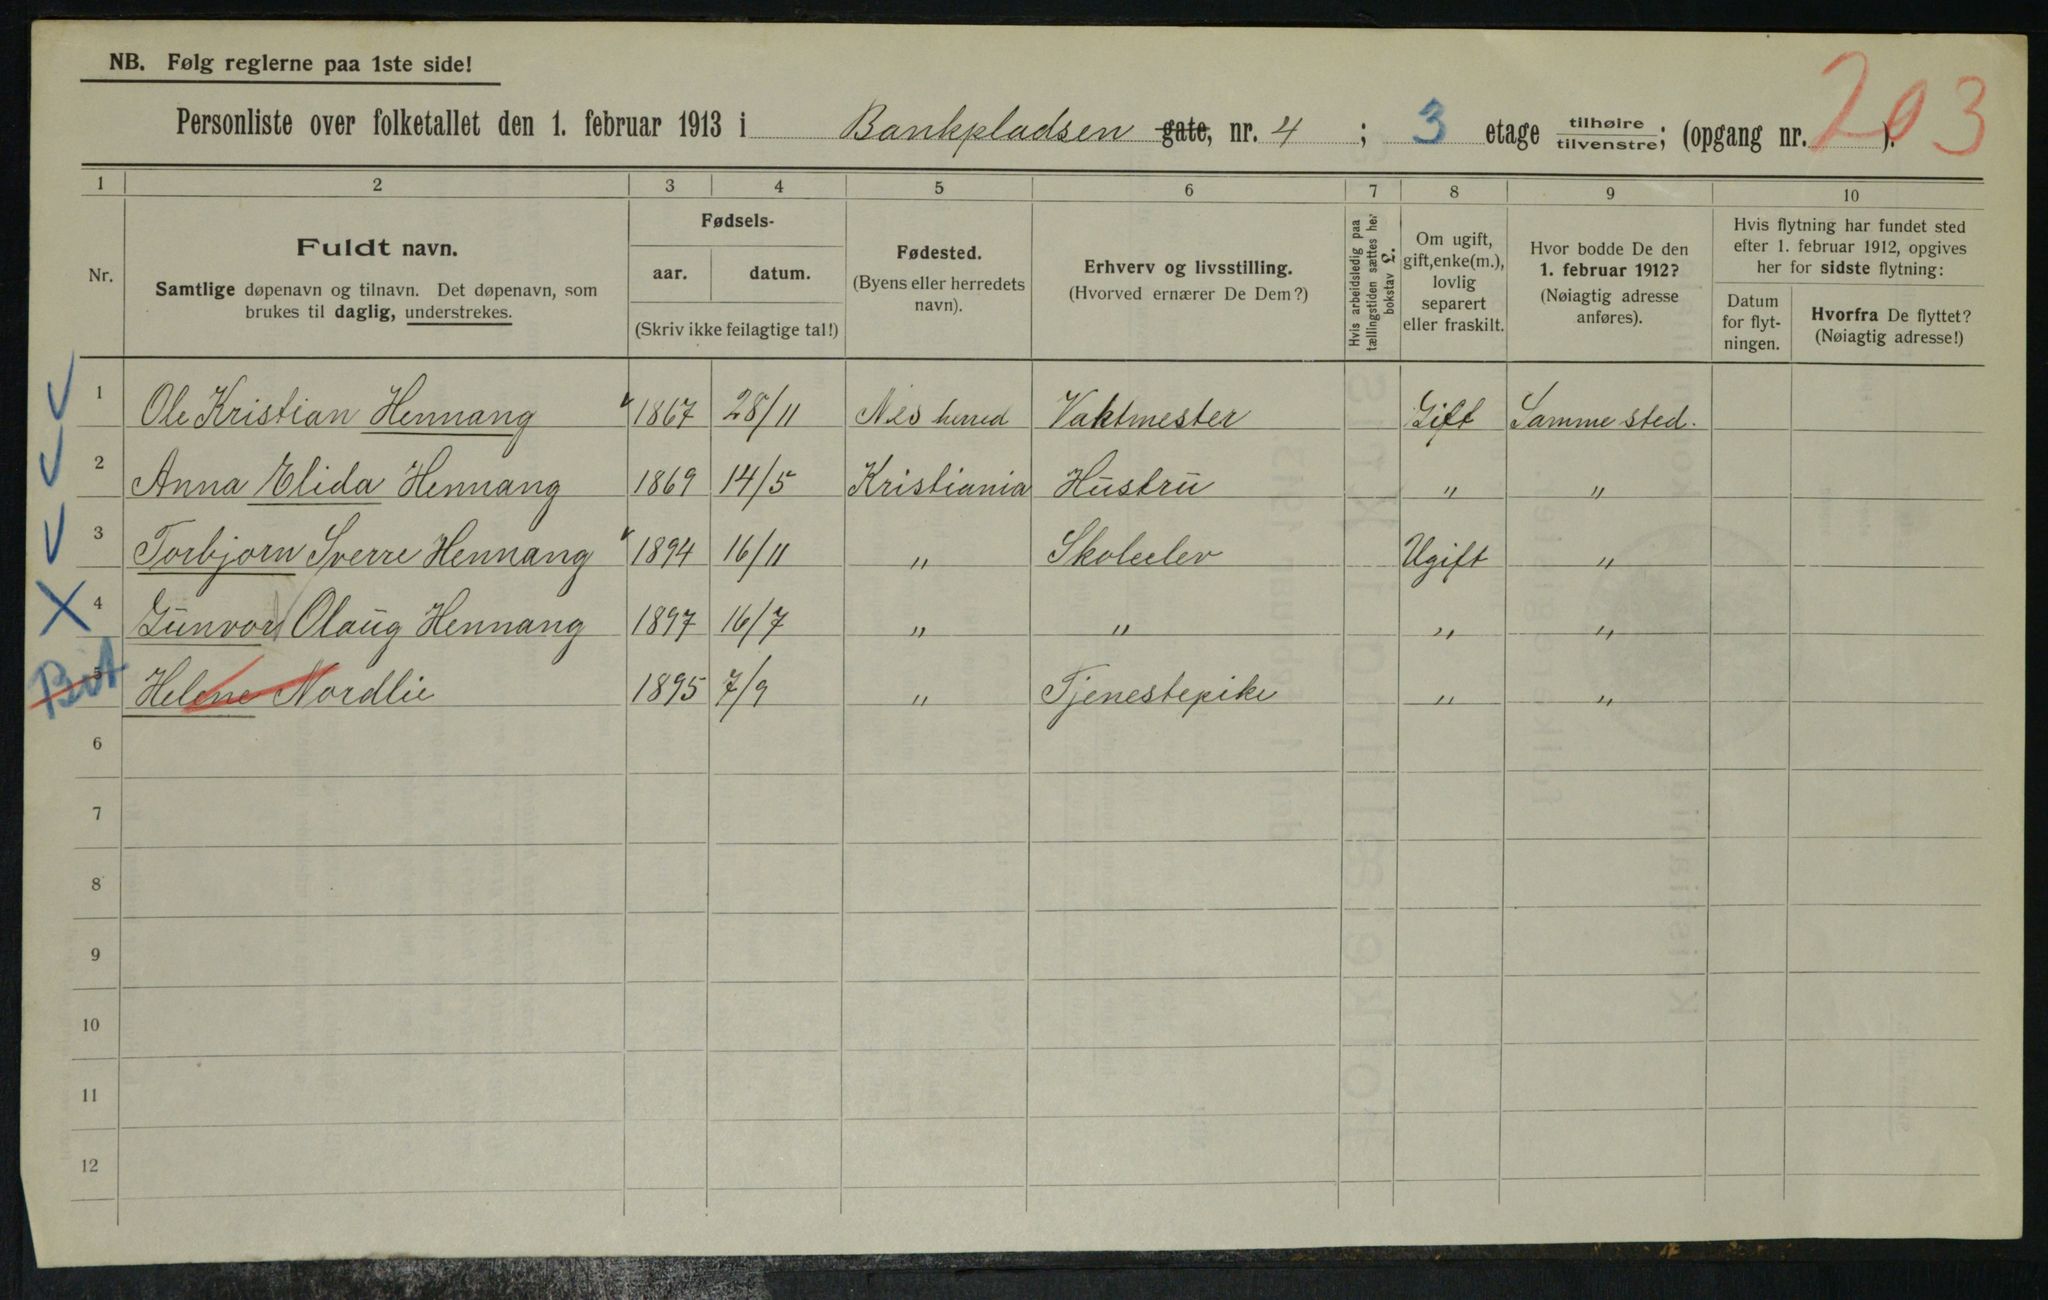 NB. Følg reglerne paa 1ste side!
Personliste over folketallet den 1. februar 1913 i Bankpladsen gate, nr. 4 ; 3 etage tilhøire tilvenstre; (opgang nr. ). 203
1 2 3 4 5 6 7 8 9 10
Nr.
Fuldt navn.
Samtlige døpenavn og tilnavn. Det døpenavn, som
brukes til daglig, understrekes.
Fødsels-
aar. datum.
(Skriv ikke feilagtige tal!)
Fødested.
(Byens eller herredets
navn).
Erhverv og livsstilling.
(Hvorved ernærer De Dem?)
Hvis arbeidsledig paa
tællingstiden sættes her
bokstav L.
Om ugift,
gift, enke(m.),
lovlig
separert
eller fraskilt.
Hvor bodde De den
1. februar 1912?
(Nøiagtig adresse
anføres).
Hvis flytning har fundet sted
efter 1. februar 1912, opgives
her for sidste flytning:
Datum
for flyt-
ningen.
Hvorfra De flyttet?
(Nøiagtig adresse!)
1 Ole Kristian Hennang 1867 28/11 Nes herred Vaktmester Gift Samme sted.
2 Anna Elida Hennang 1869 14/5 Kristiania Hustru " "
3 Torbjorn Sverre Hennang 1894 16/11 " Skoleelev Ugift "
X 4 Gunvor Olaug Hennang 1897 16/7 " " " "
5 Helene Nordlie 1895 7/9 " Tjenestepike " "
6
7
8
9
10
11
12